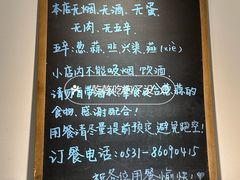 本店无烟、无酒、无蛋、
无肉、无五辛.
五辛:葱、蒜、韭、兴渠、薤(xiè)
小店内不能吸烟、饮酒
请勿自带酒、荤食 葱、蒜的
食物,感谢配合!
用餐请尽量提前预定 避免跑空!
订餐电话:0531-86090415
祝各位用餐愉快!